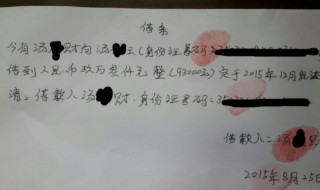 借条
今有汤 财向汤 云(身份证号码:
借到人民币玖万叁仟元整(93000元)定于2015年12月
清。借款人汤 财.身份证号码:35
借款人:汤
2015年8月25日